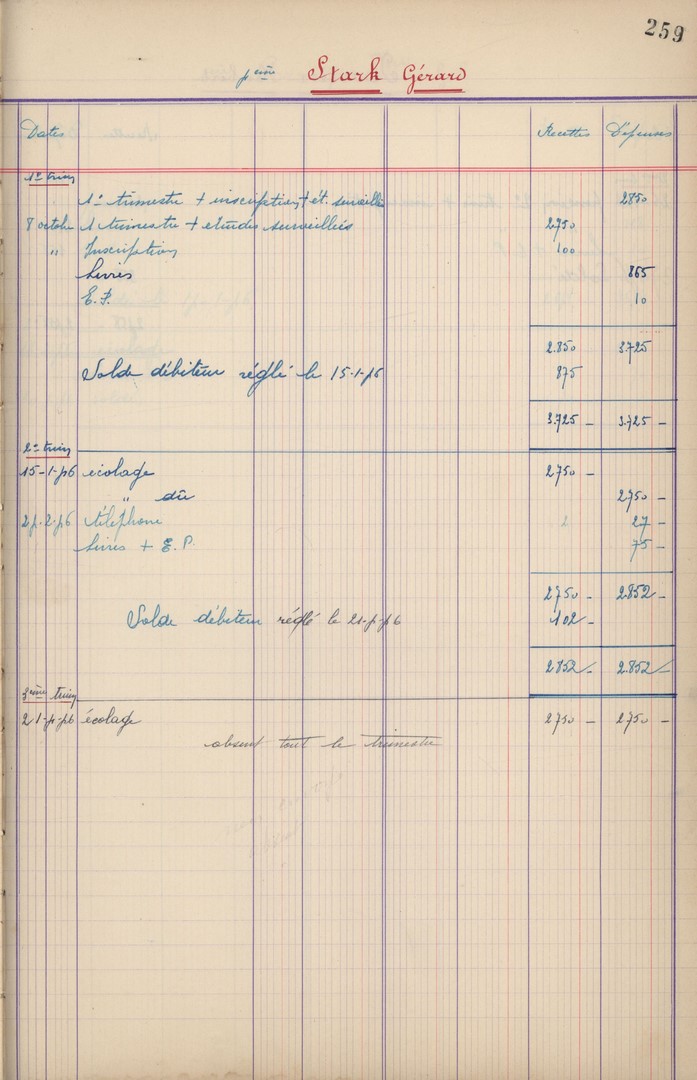 259
Stark Gérard
Dates Recettes Dépenses
1er trim
1er trimestre + inscription + ét. surveillée 2850
8 octobre 1 trimestre + etudes surveillées 2750
" Inscription 100
Livres 865
E.P. 10
2.850 3.725
Solde débiteur réglé le 15-1- 875
3.725 - 3.725 -
2e trim
15-1- écolage 2750 -
" dû 2.750 -
téléphone 27 -
Livres + E.P. 75 -
2750 - 2.852 -
Solde débiteur réglé le 102 -
2.852 - 2.852 -
3ème trim
écolage 2750 - 2.750 -
absent tout le trimestre